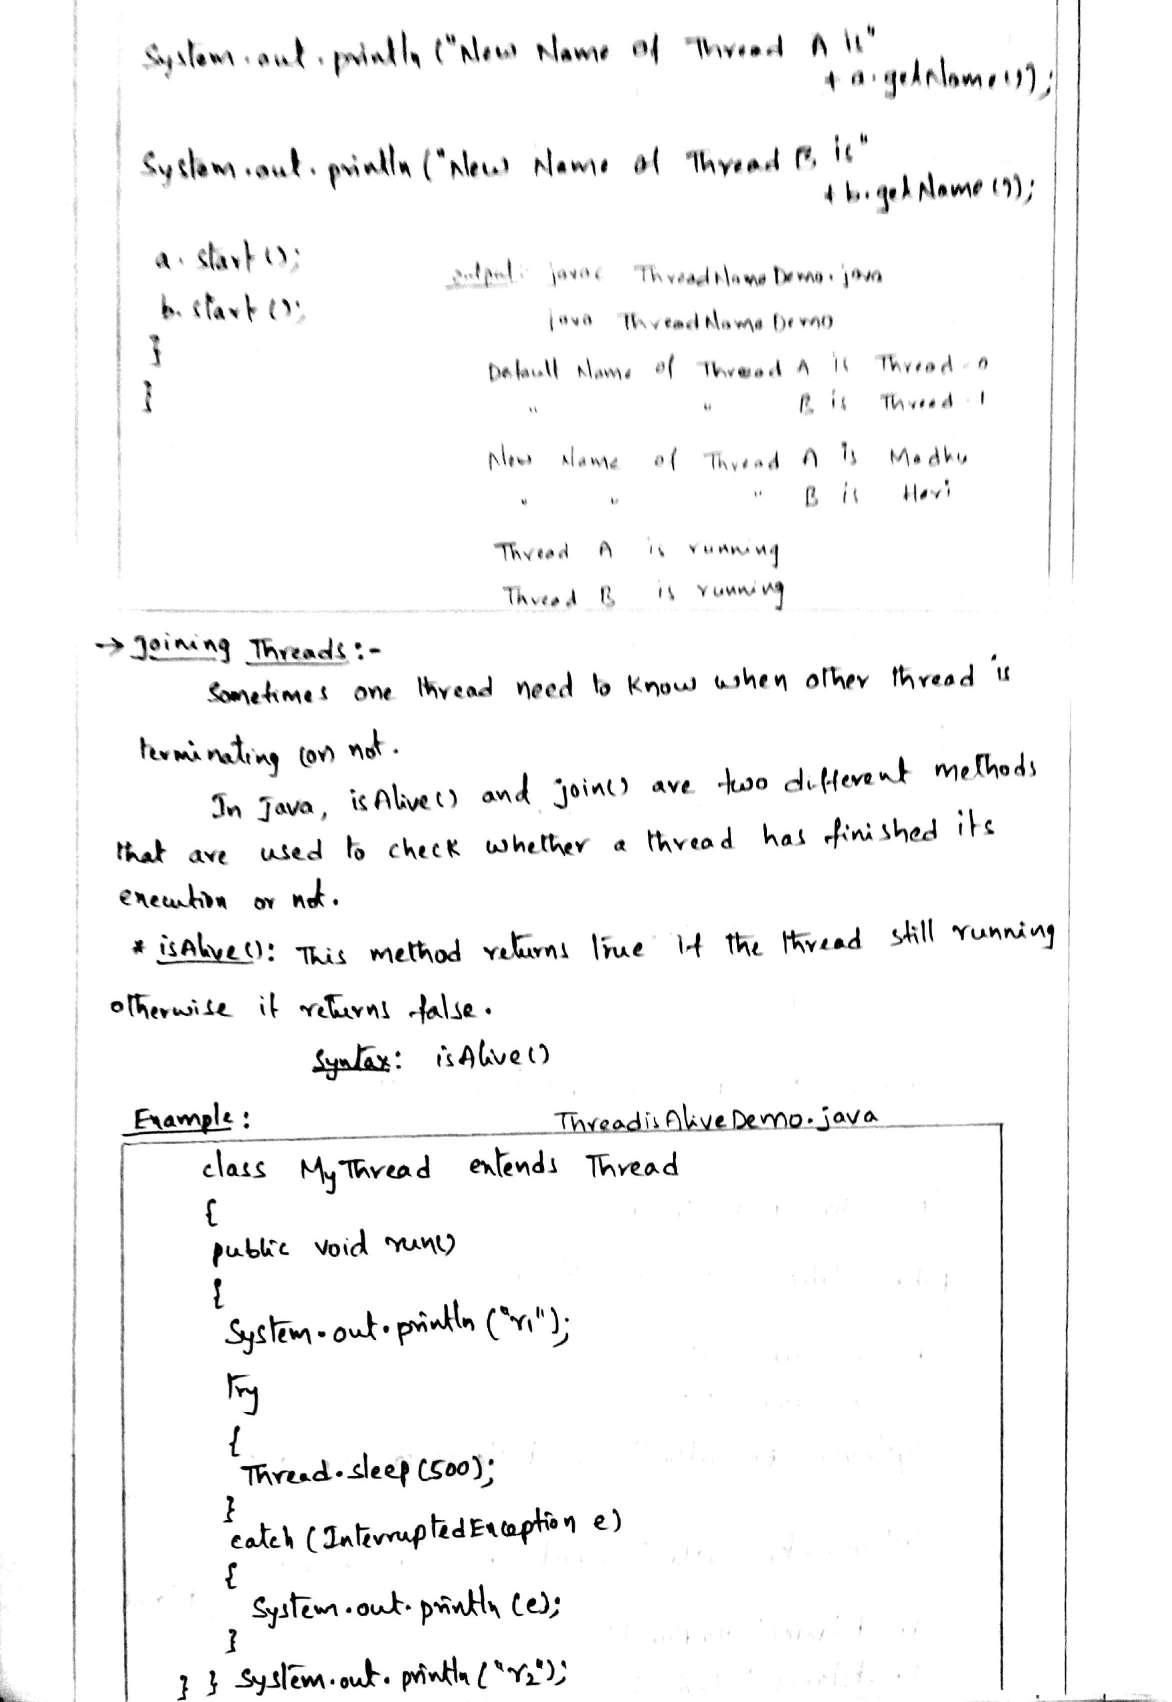 System.out.println ("New Name of Thread A is"
+ a.getName());
System.out.println ("New Name of Thread B is"
+ b.getName());
a. start ();
b. start ();
}
}
output: javac ThreadNameDemo.java
java ThreadNameDemo
Default Name of Thread A is Thread-0
" " B is Thread-1
New Name of Thread A is Madhu
" " " B is Hari
Thread A is running
Thread B is running
→ Joining Threads :-
Sometimes one thread need to know when other thread is
terminating (or) not.
In Java, isAlive() and join() are two different methods
that are used to check whether a thread has finished its
execution or not.
* isAlive(): This method returns true if the thread still running
otherwise it returns false.
Syntax: isAlive()
Example: ThreadisAliveDemo.java
class MyThread extends Thread
{
public void run()
{
System.out.println ("r1");
Try
{
Thread.sleep (500);
}
catch (InterruptedException e)
{
System.out.println (e);
}
} } System.out.println ("r2");